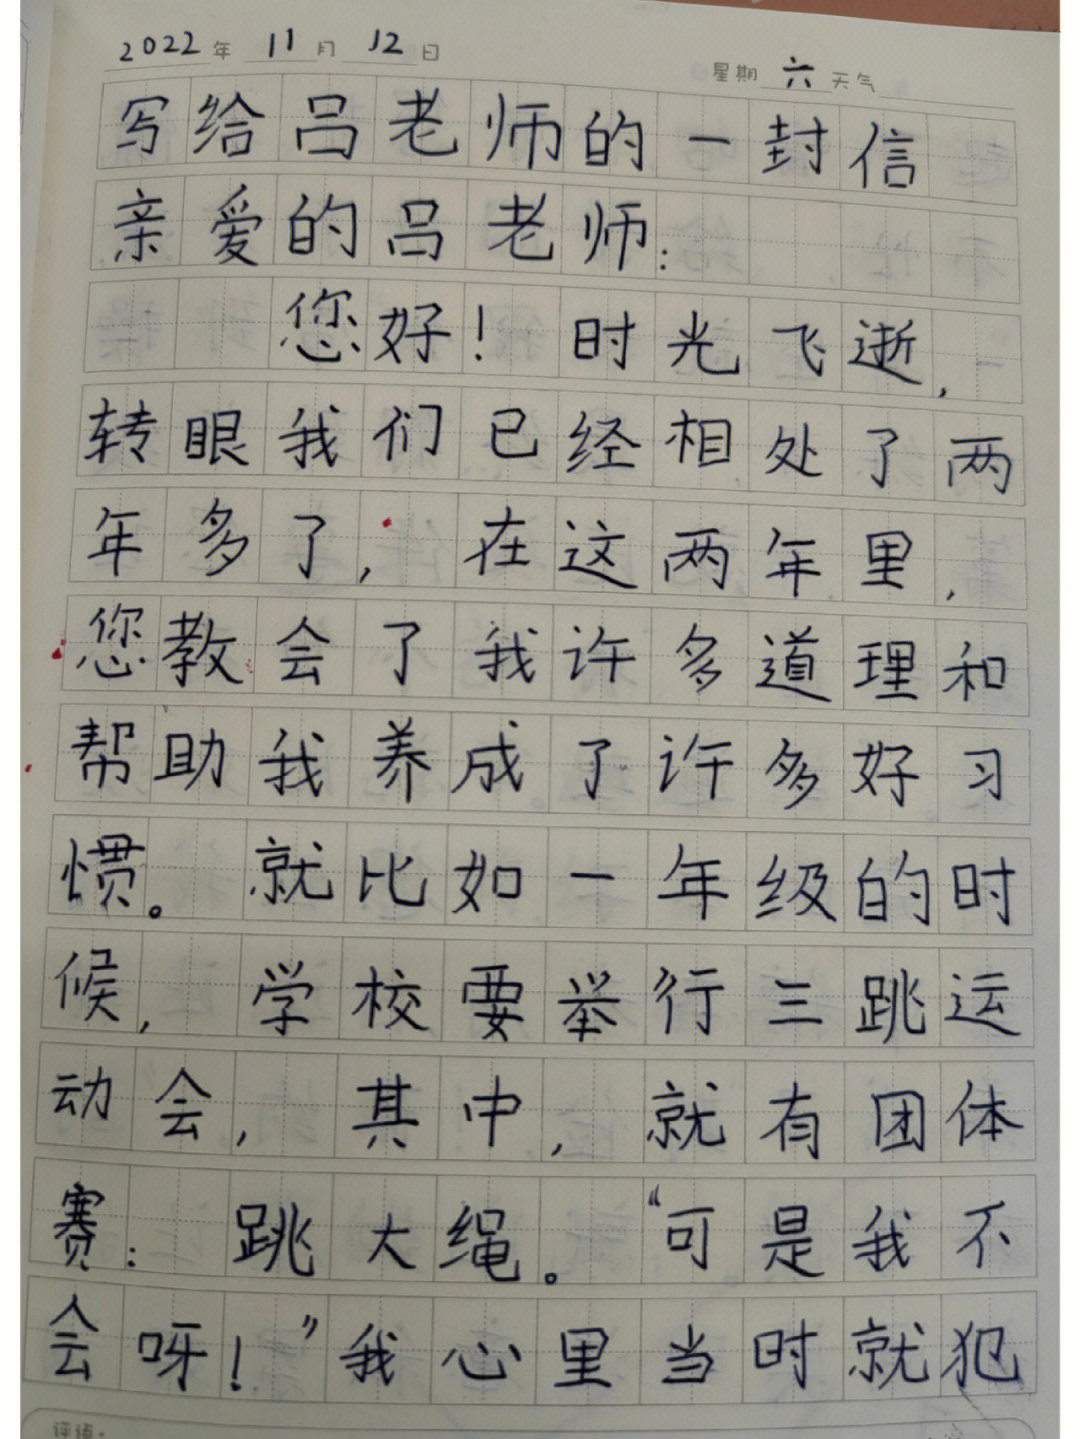 2022年 11月 12日 星期 六 天气
写给吕老师的一封信
亲爱的吕老师:
您好!时光飞逝,
转眼我们已经相处了两
年多了,在这两年里,
您教会了我许多道理和
帮助我养成了许多好习
惯。就比如一年级的时
候,学校要举行三跳运
动会,其中,就有团体
赛:跳大绳。“可是我不
会呀!”我心里当时就犯
评语: